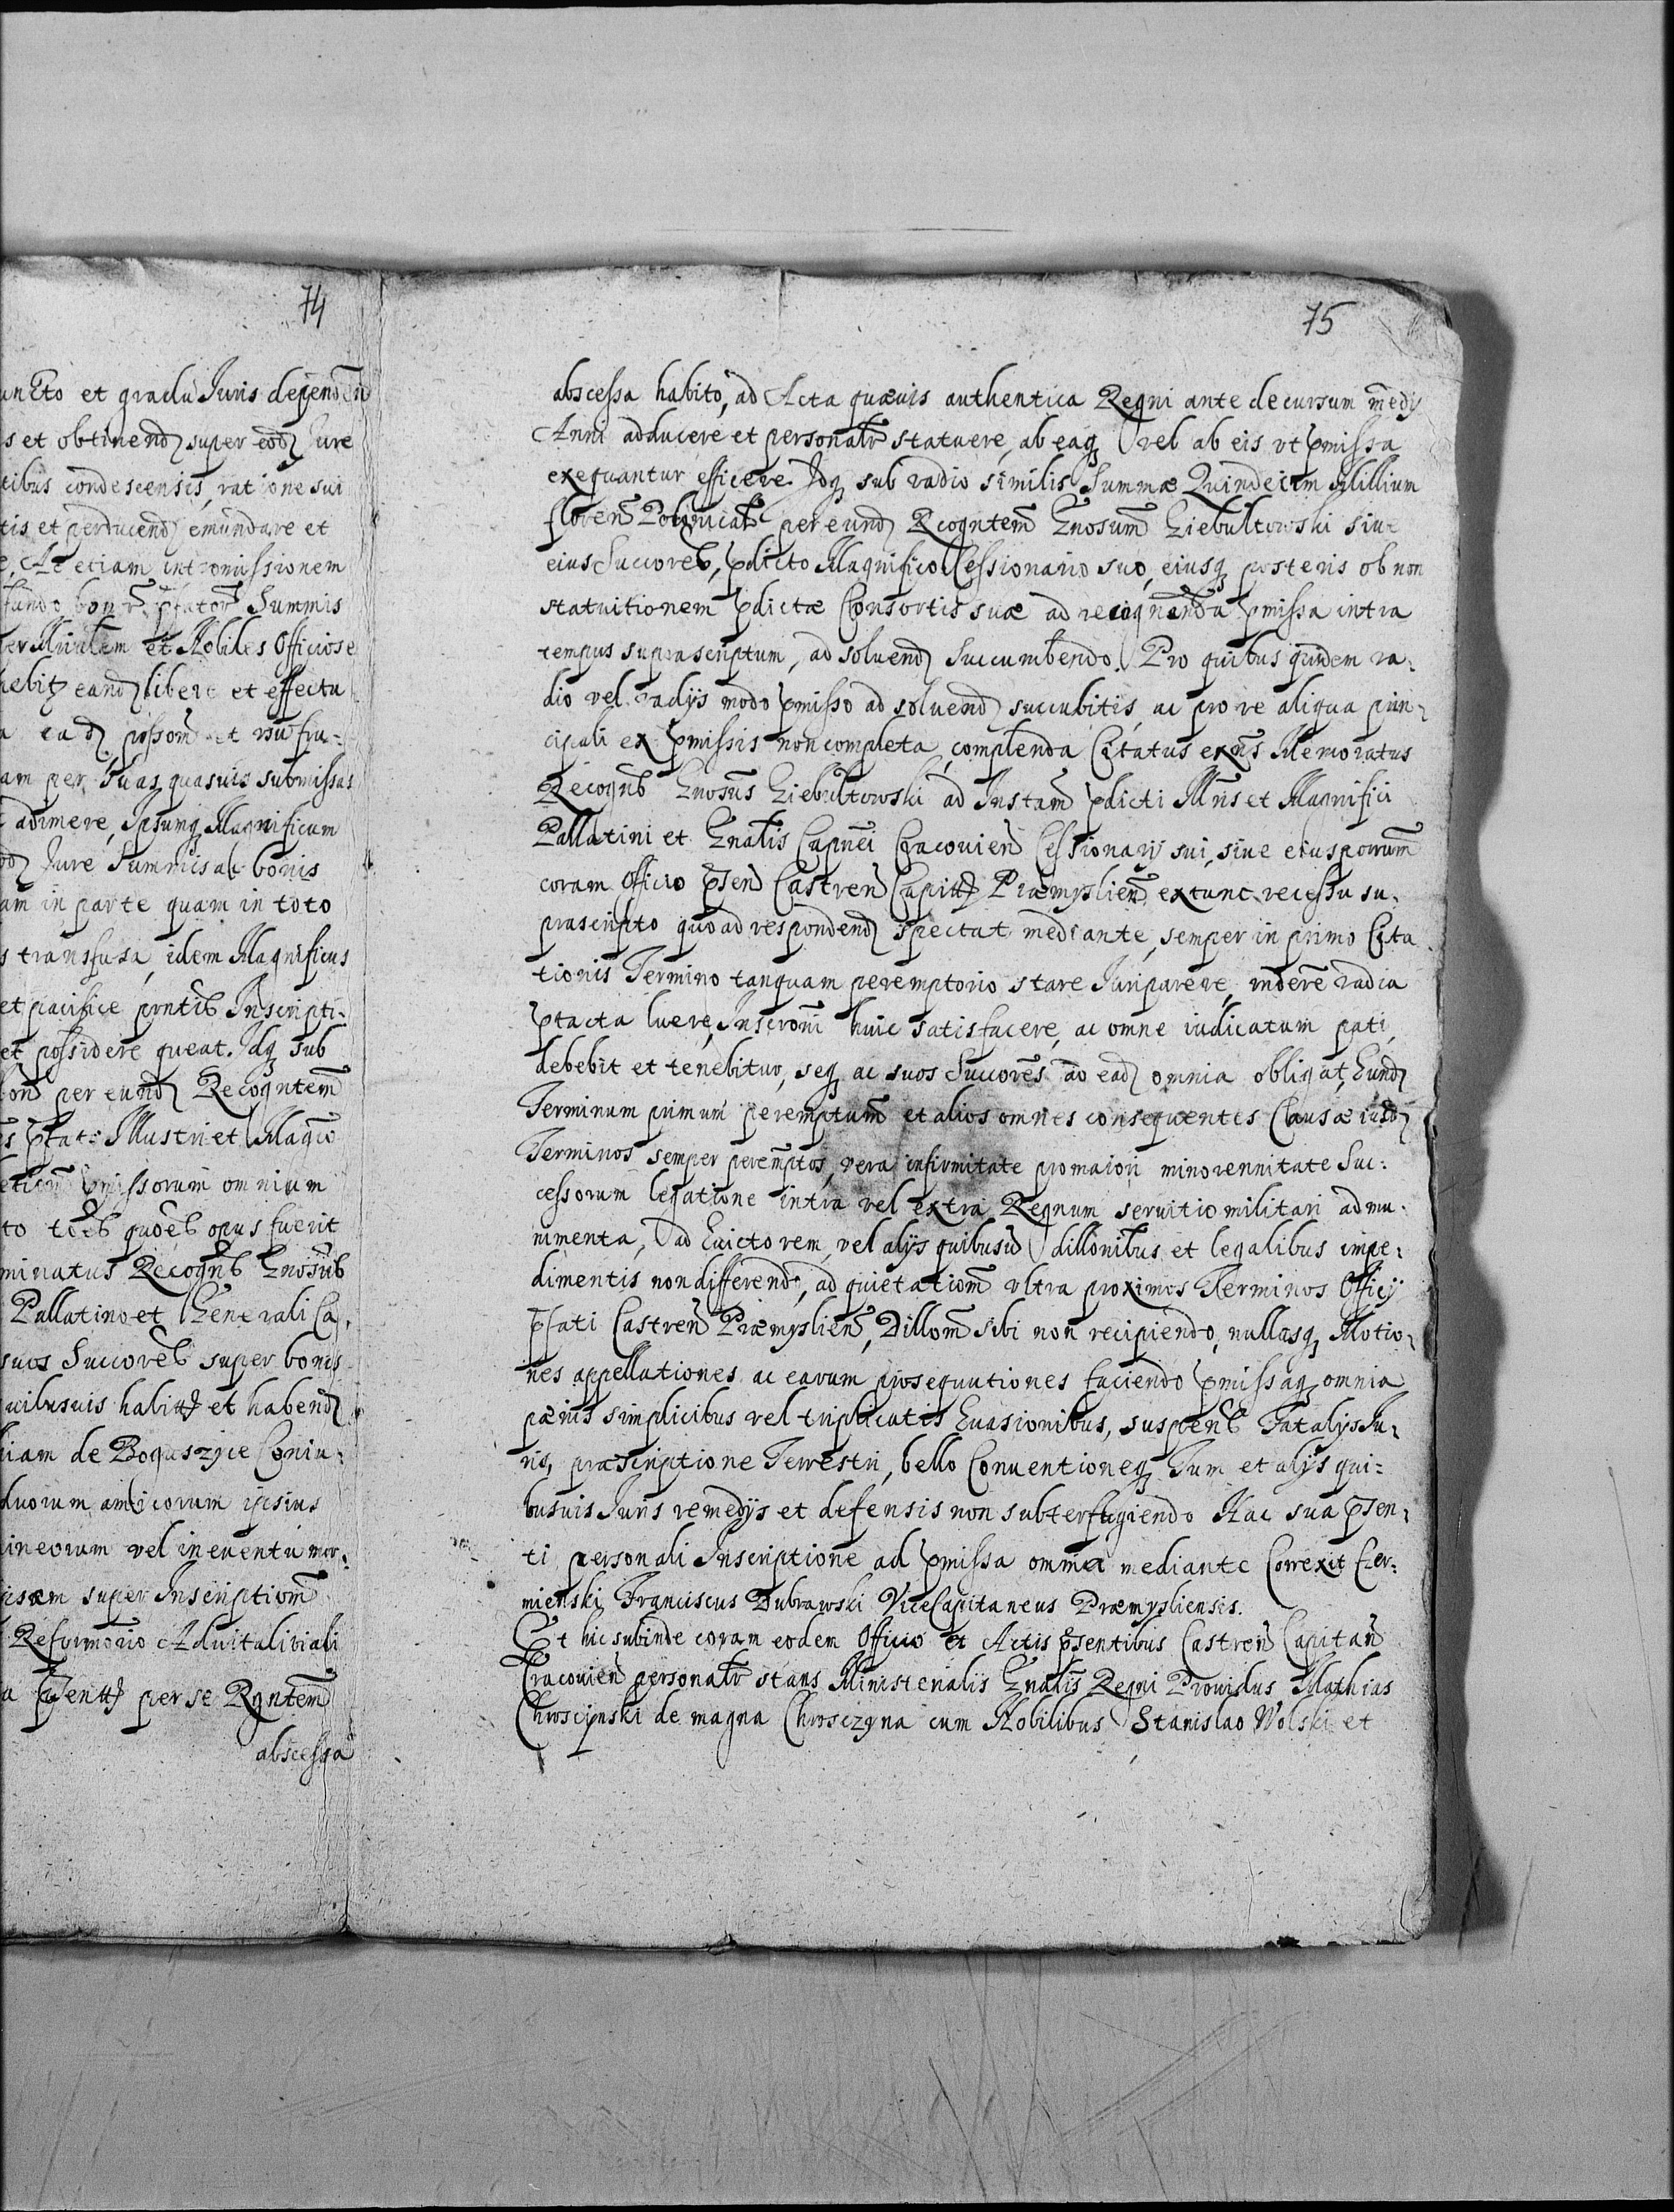 74
uncto et gradu Juris dependen
s et obtinend super eod Jure
tibus condescensis, ratione sui
tis et perducend emundare et
e, Ac etiam intromissionem
fando bonr pfator Summis
er Minlem et Nobiles Officiose
hebitq eand libere et effectu
a ead possom et usu fru-
am per suas quasuis submissas
adimere, Ipsumq Magnificum
od Jure Summis ac bonis
am in parte quam in toto
s transfusa, idem Magnificus
et pacifice pntib Inscripti-
et possidere queat. Idq sub
on per eund Recogntem
s pfato Illustri et Magco
pmissorum omnium
to toeb quoeb opus fuerit
minatus Recognb Gnosub
Pallatino et Generali Ca-
suos Succoreb super bonis
uibusuis habitq et habend
iam de Boguszyce Coniu-
duorum amicorum ipsius
ineorum vel in euentu mor-
ipsam super Inscriptiom
Reformorio Aduitalitiali
a psentq per se Rgntem
abscessa
75
abscessa habito, ad Acta quæuis authentica Regni ante decursum medy
Anni adducere et personalr statuere, ab eaq vel ab eis vt pmissa
exequantur efficere. Idq sub vadio similis Summæ Quindecim Millium
floren Polonicalr per eund Recogntem Gnosum Giebultowski siue
eius Succoreb, pdicto Magnifico Cessionario suo, eiusq posteris ob non
statuitionem pdictæ Consortis suæ ad recognenda pmissa intra
tempus suprascriptum, ad soluend succumbendo. Pro quibus quidem va-
dio vel vadys modo pmisso ad soluend succubitis, ac pro re aliqua prin-
cipali ex pmissis non completa, complenda Citatus exns Memoratus
Recognb Gnosus Giebultowski ad Instam pdicti Illris et Magnifici
Pallatini et Gnalis Capnei Cracouien Cessionary sui, siue eius porum
coram Officio psen Castren Capitq Præmyslien extunc recessu su-
prascripto quoad respondend spectat mediante, semper in primo Cita-
tionis Termino tanquam peremptorio stare Juri parere, rndere vadia
ptacta luere, Inscroni huic satisfacere, ac omne iudicatum pati,
debebit et tenebitur, seq ac suos Succores ad ead omnia obligat, Eund
Terminum primum peremptum et alios omnes consequentes Causæ iusd
Terminos semper peremptos, vera infirmitate pro maiori minorennitate Suc-
cessorum legatione intra vel extra Regnum seruitio militari ad mu-
nimenta, ad Euictorem, vel alys quibusuis dillonibus et legalibus impe-
dimentis non differendo, ad quietatiom vltra proximos Terminos Officy
pfati Castren Præmyslien, Dillom sibi non recipiendo, nullasq Motio-
nes appellationes ac earum prosequutiones faciendo pmissaq omnia
pænis simplicibus vel triplicatis Euasionibus, suspenb Fatalys Ju-
ris, præscriptione Terrestri, bello Conuentioneq Tum et alys qui-
busuis Juris remedys et defensis non subterfugiendo Hac sua psen-
ti personali Inscriptione ad pmissa omnia mediante Correxit Czer-
mienski, Franciscus Dubrawski ViceCapitaneus Præmysliensis.
Et hic subinde coram eodem Officio et Actis psentibus Castren Capitan
Cracouien personalr stans Ministerialis Gnalis Regni Prouidus Mathias
Chroscinski de magna Chrosczyna cum Nobilibus Stanislao Wolski et